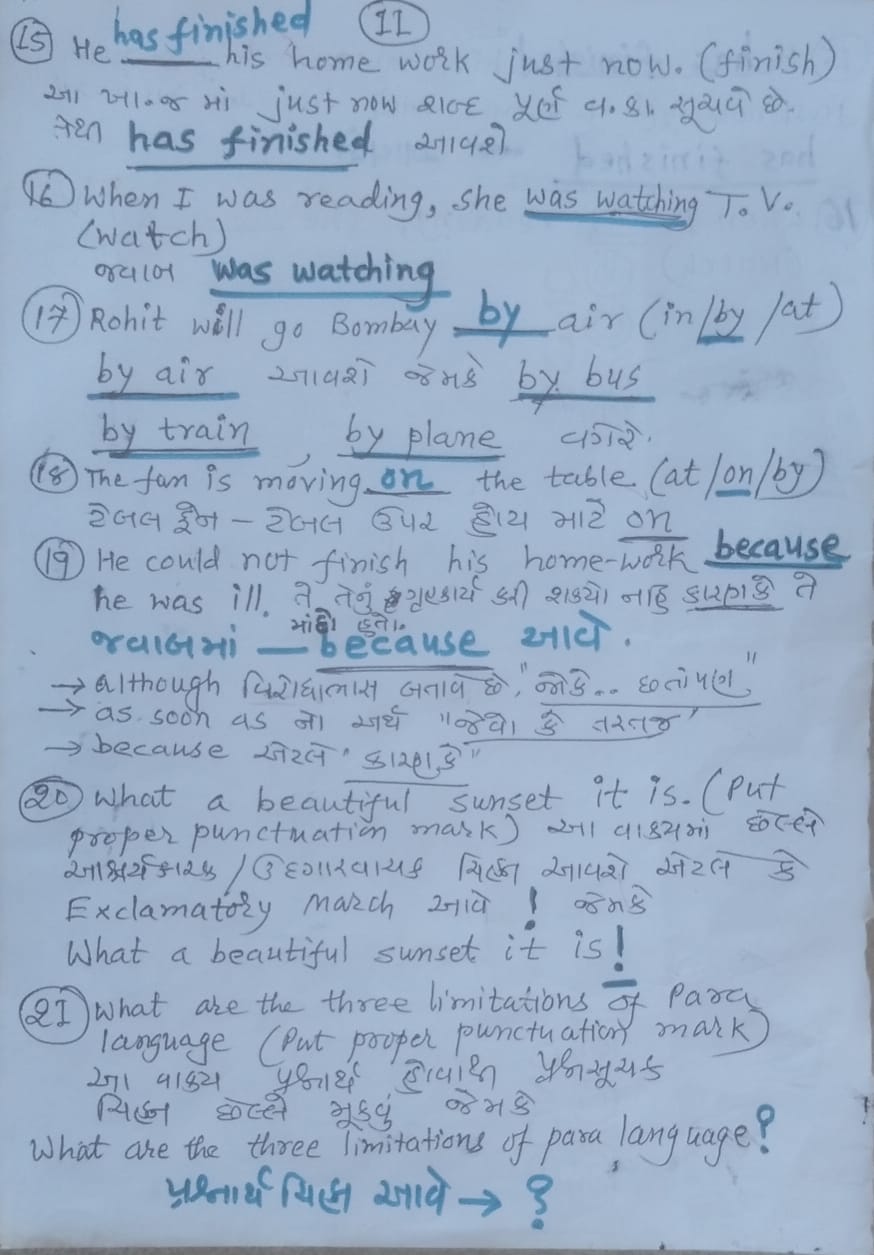 II
(15) He has finished his home work just now. (finish)
આ ખા.જ માં just now શબ્દ પૂર્ણ વ.કા. સૂચવે છે.
તેથી has finished આવશે
(16) When I was reading, she was watching T.V.
(watch)
જવાબ was watching
(17) Rohit will go Bombay by air (in/by/at)
by air આવશે જેમકે by bus
by train, by plane વગેરે.
(18) The fan is moving on the table (at/on/by)
ટેબલ ફેન – ટેબલ ઉપર હોય માટે on
(19) He could not finish his home-work because
he was ill. તે તેનું ગૃહકાર્ય કરી શક્યો નહિ કારણકે તે
માંદો હતો.
જવાબમાં – because આવે.
→ although વિરોધાભાસ બતાવે છે, "જોકે.. છતાંપણ"
→ as soon as નો અર્થ "જેવો કે તરતજ"
→ because એટલે "કારણકે"
(20) What a beautiful sunset it is. (Put
proper punctuation mark) આ વાક્યમાં છેલ્લે
આશ્ચર્યકારક / ઉદગારવાચક ચિહ્ન આવશે એટલે કે
Exclamatory March આવે ! જેમકે
What a beautiful sunset it is!
(21) What are the three limitations of Para
language (Put proper punctuation mark)
આ વાક્ય પ્રશ્નાર્થ હોવાથી પ્રશ્નસૂચક
ચિહ્ન છેલ્લે મૂકવું જેમકે
What are the three limitations of para language?
પ્રશ્નાર્થ ચિહ્ન આવે → ?